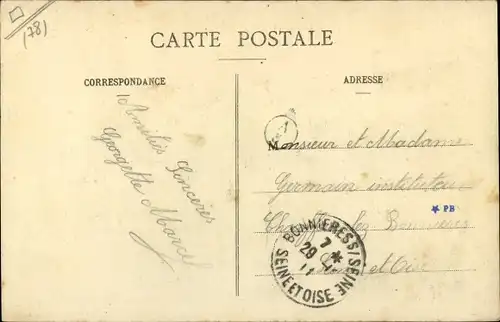 (78)
CARTE POSTALE
CORRESPONDANCE
ADRESSE
Amitiés Sincères
Georgette Marcel
Monsieur et Madame
Germain instituteur
PB
lez Bonnières
et Oise
BONNIERES S/SEINE
7
28
SEINE ET OISE